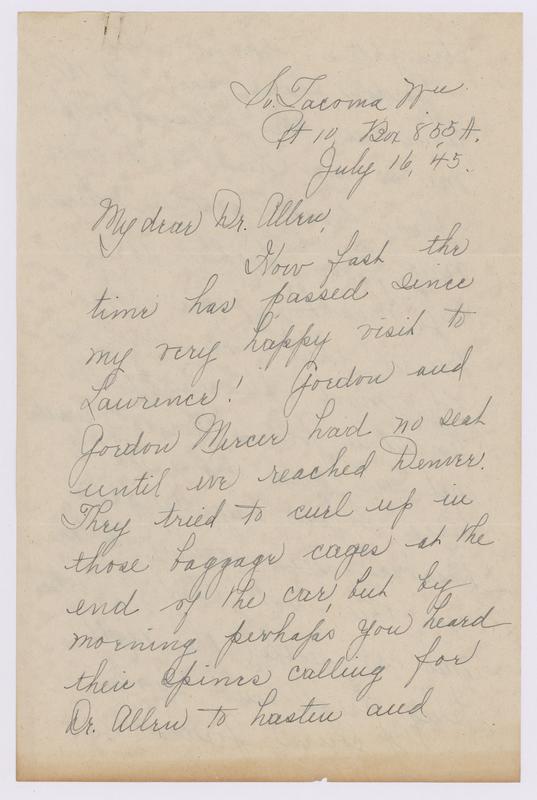 So. Tacoma Wn.
Rt 10, Box 855A.
July 16, '45.
My dear Dr. Allen,
How fast the
time has passed since
my very happy visit to
Lawrence! Gordon and
Gordon Mercer had no seat
until we reached Denver.
They tried to curl up in
those baggage cages at the
end of the car, but by
morning perhaps you heard
their spines calling for
Dr. Allen to hasten and